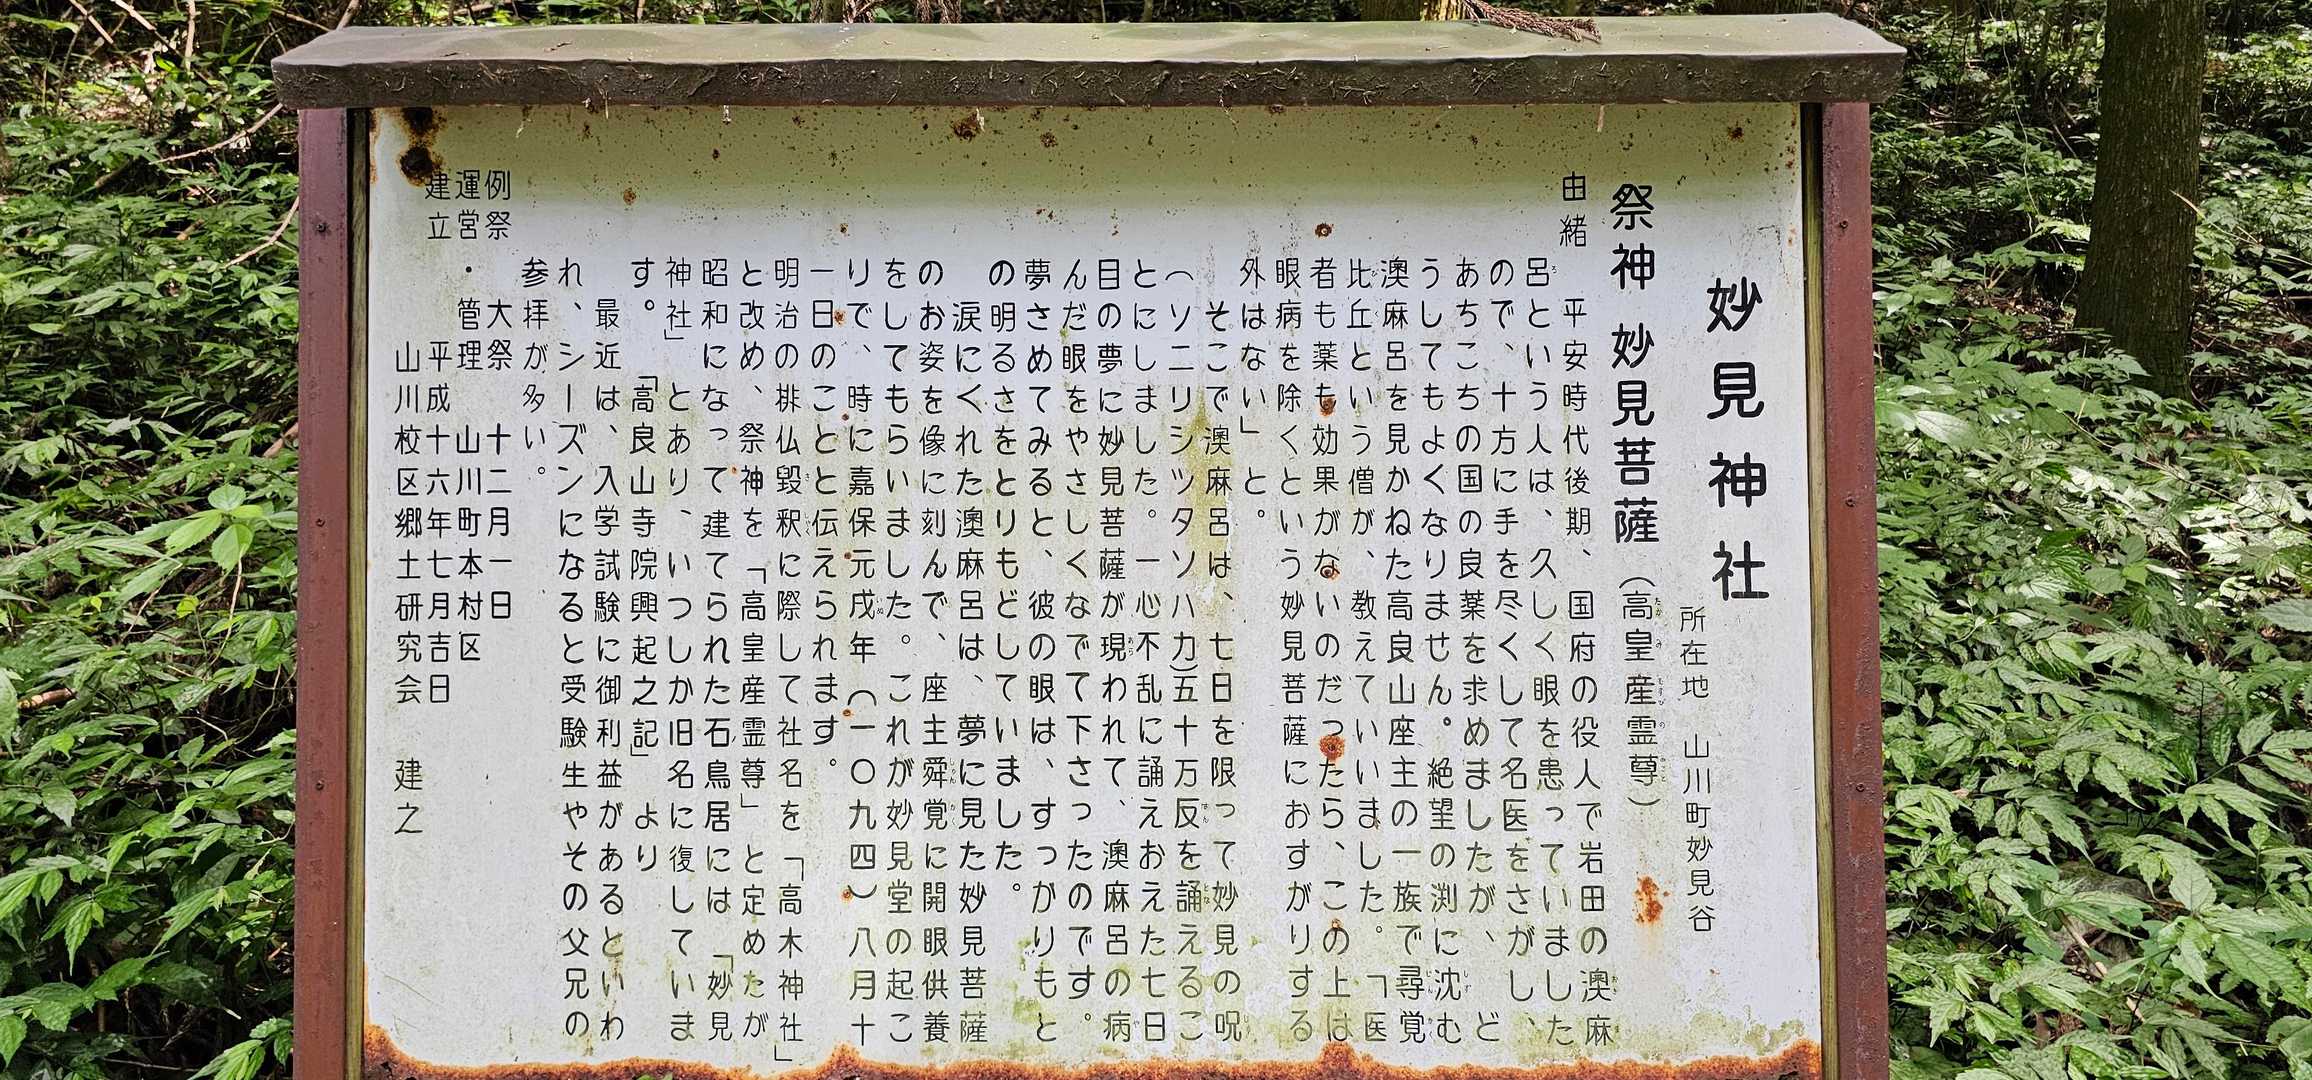 妙見神社
所在地 山川町妙見谷
祭神 妙見菩薩（高皇産霊尊）
由緒
平安時代後期、国府の役人で岩田の澳麻
呂という人は、久しく眼を患っていました
ので、十方に手を尽くして名医をさがし、
あちこちの国の良薬を求めましたが、ど
うしてもよくなりません。絶望の渕に沈む
澳麻呂を見かねた高良山座主の一族で尋覚
比丘という僧が、教えていいました。「医
者も薬も効果がないのだったら、この上は
眼病を除くという妙見菩薩におすがりする
外はない」と。
そこで澳麻呂は、七日を限って妙見の呪
（ソニリシツタソハカ）五十万反を誦えるこ
とにしました。一心不乱に誦えおえた七日
目の夢に妙見菩薩が現われて、澳麻呂の病
んだ眼をやさしくなでて下さったのです。
夢さめてみると、彼の眼は、すっかりもと
の明るさをとりもどしていました。
涙にくれた澳麻呂は、夢に見た妙見菩薩
のお姿を像に刻んで、座主舜覚に開眼供養
をしてもらいました。これが妙見堂の起こ
りで、時に嘉保元戌年（一〇九四）八月十
一日のことと伝えられます。
明治の排仏毀釈に際して社名を「高木神社」
と改め、祭神を「高皇産霊尊」と定めたが
昭和になって建てられた石鳥居には「妙見
神社」とあり、いつしか旧名に復していま
す。「高良山寺院興起之記」より
最近は、入学試験に御利益があるといわ
れ、シーズンになると受験生やその父兄の
参拝が多い。
例祭 大祭 十二月一日
運営・管理 山川町本村区
建立 平成十六年七月吉日
山川校区郷土研究会 建之